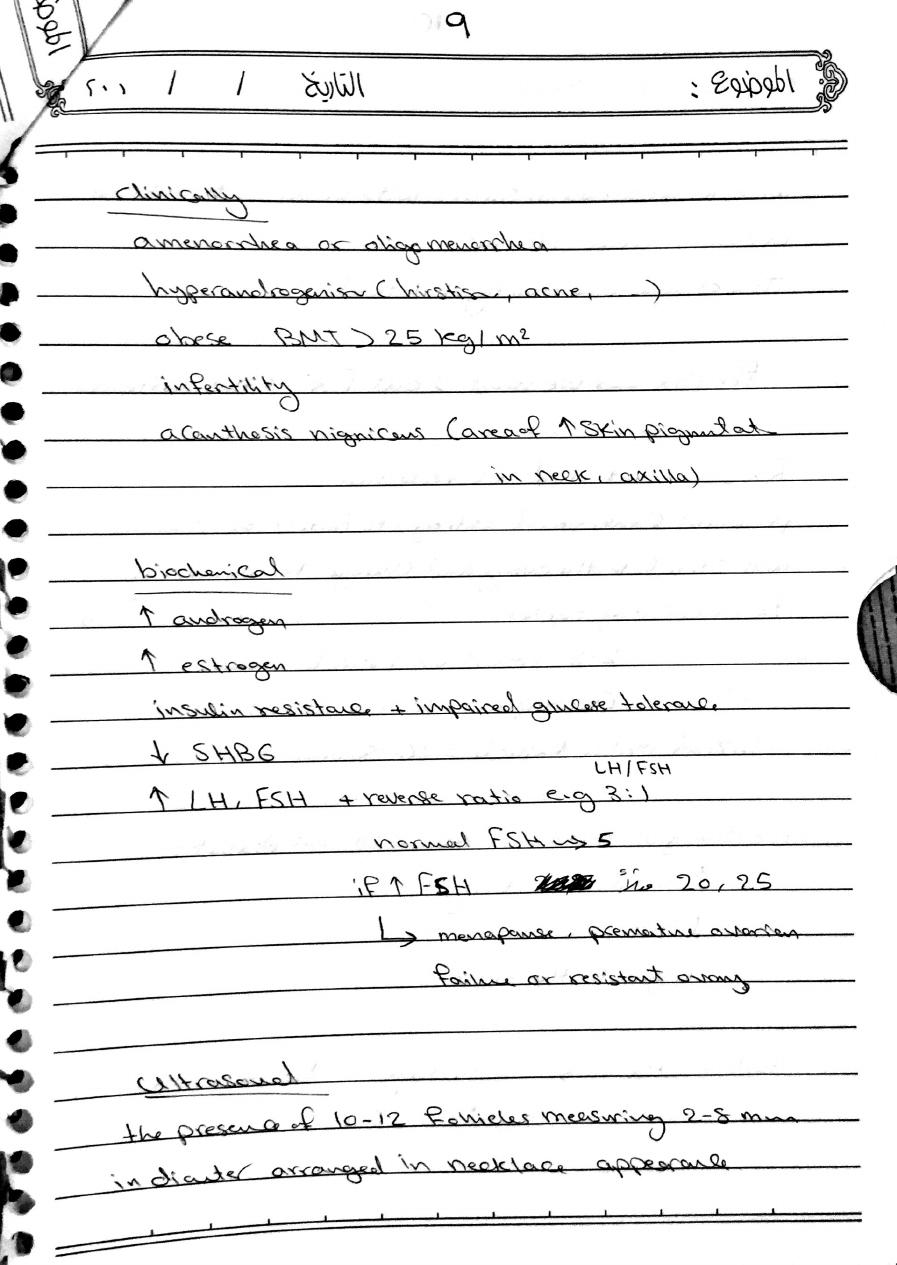 9
الموضوع :
التاريخ / / ٢٠٠١
clinically
amenorrhea or oligomenorrhea
hyperandrogenism (hirstism, acne, ....)
obese BMI > 25 kg/m²
infertility
acanthesis nignicens (area of ↑ skin pigmentat
in neck, axilla)
biochemical
↑ androgen
↑ estrogen
insulin resistance + impaired glucose tolerance
↓ SHBG
LH/FSH
↑ LH, FSH + reverse ratio e.g 3:1
normal FSH → 5
if ↑ FSH 20, 25
↳ menopause, premature ovarian
failure or resistant ovary
Ultrasound
the presence of 10-12 follicles measuring 2-8 mm
in diameter arranged in necklace appearance